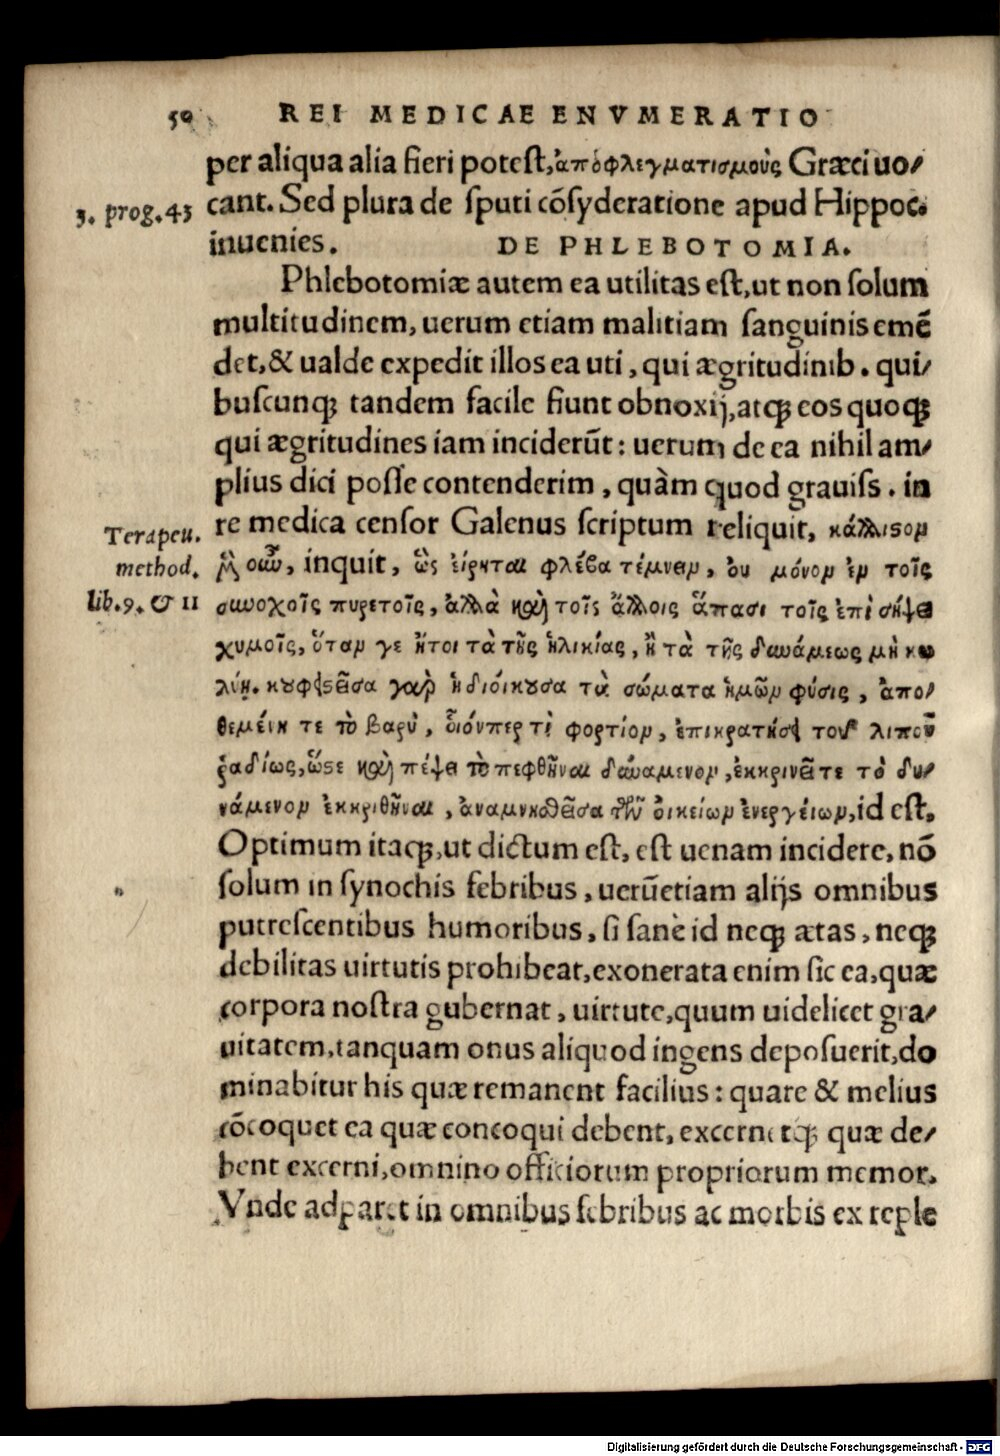 50 REI MEDICAE ENVMERATIO
per aliqua alia fieri potest, ἀποφλεγματισμοὺς Græci uo/
3. prog. 43 cant. Sed plura de sputi cõsyderatione apud Hippoc.
inuenies. DE PHLEBOTOMIA.
Phlebotomiæ autem ea utilitas est, ut non solum
multitudinem, uerum etiam malitiam sanguinis emẽ
det, & ualde expedit illos ea uti, qui ægritudinib. qui/
buscunqꝫ tandem facile fiunt obnoxij, atqꝫ eos quoqꝫ
qui ægritudines iam inciderũt: uerum de ea nihil am/
plius dici posse contenderim, quàm quod grauiss. in
Terapeu. re medica censor Galenus scriptum reliquit, κάλλιστον
method. μὲν οὖν, inquit, ὡς εἴρηται φλέβα τέμνειν, ου μόνον ἐν τοῖς
lib. 9. & 11 συνοχοῖς πυρετοῖς, ἀλλὰ καὶ τοῖς ἄλλοις ἅπασι τοῖς ἐπὶ σήψει
χυμοῖς, ὅταν γε ἤτοι τὰ τῆς ἡλικίας, ἢ τὰ τῆς δυνάμεως μὴ κω
λύῃ. κουφισθεῖσα γαρ ἡ διοικουσα τὰ σώματα ἡμῶν φύσις, ἀπο/
θεμένη τε τὸ βαρὺ, οἱόνπερ τὶ φορτίον, ἐπικρατήσει τοῦ λιποῦ
ῥαδίως, ὥστε καὶ πέψει τὸ πεφθῆναι δυνάμενον, ἐκκρινεῖ τε τὸ δυ/
νάμενον ἐκκριθῆναι, ἀναμνησθεῖσα τῶν οἰκείων ἐνεργείων, id est,
Optimum itaqꝫ, ut dictum est, est uenam incidere, nõ
solum in synochis febribus, uerũetiam alijs omnibus
putrescentibus humoribus, si sanè id neqꝫ ætas, neqꝫ
debilitas uirtutis prohibeat, exonerata enim sic ea, quæ
corpora nostra gubernat, uirtute, quum uidelicet gra/
uitatem, tanquam onus aliquod ingens deposuerit, do
minabitur his quæ remanent facilius: quare & melius
cõcoquet ea quæ concoqui debent, excernetqꝫ quæ de/
bent excerni, omnino officiorum propriorum memor.
Vnde adparet in omnibus febribus ac morbis ex reple
Digitalisierung gefördert durch die Deutsche Forschungsgemeinschaft - DFG